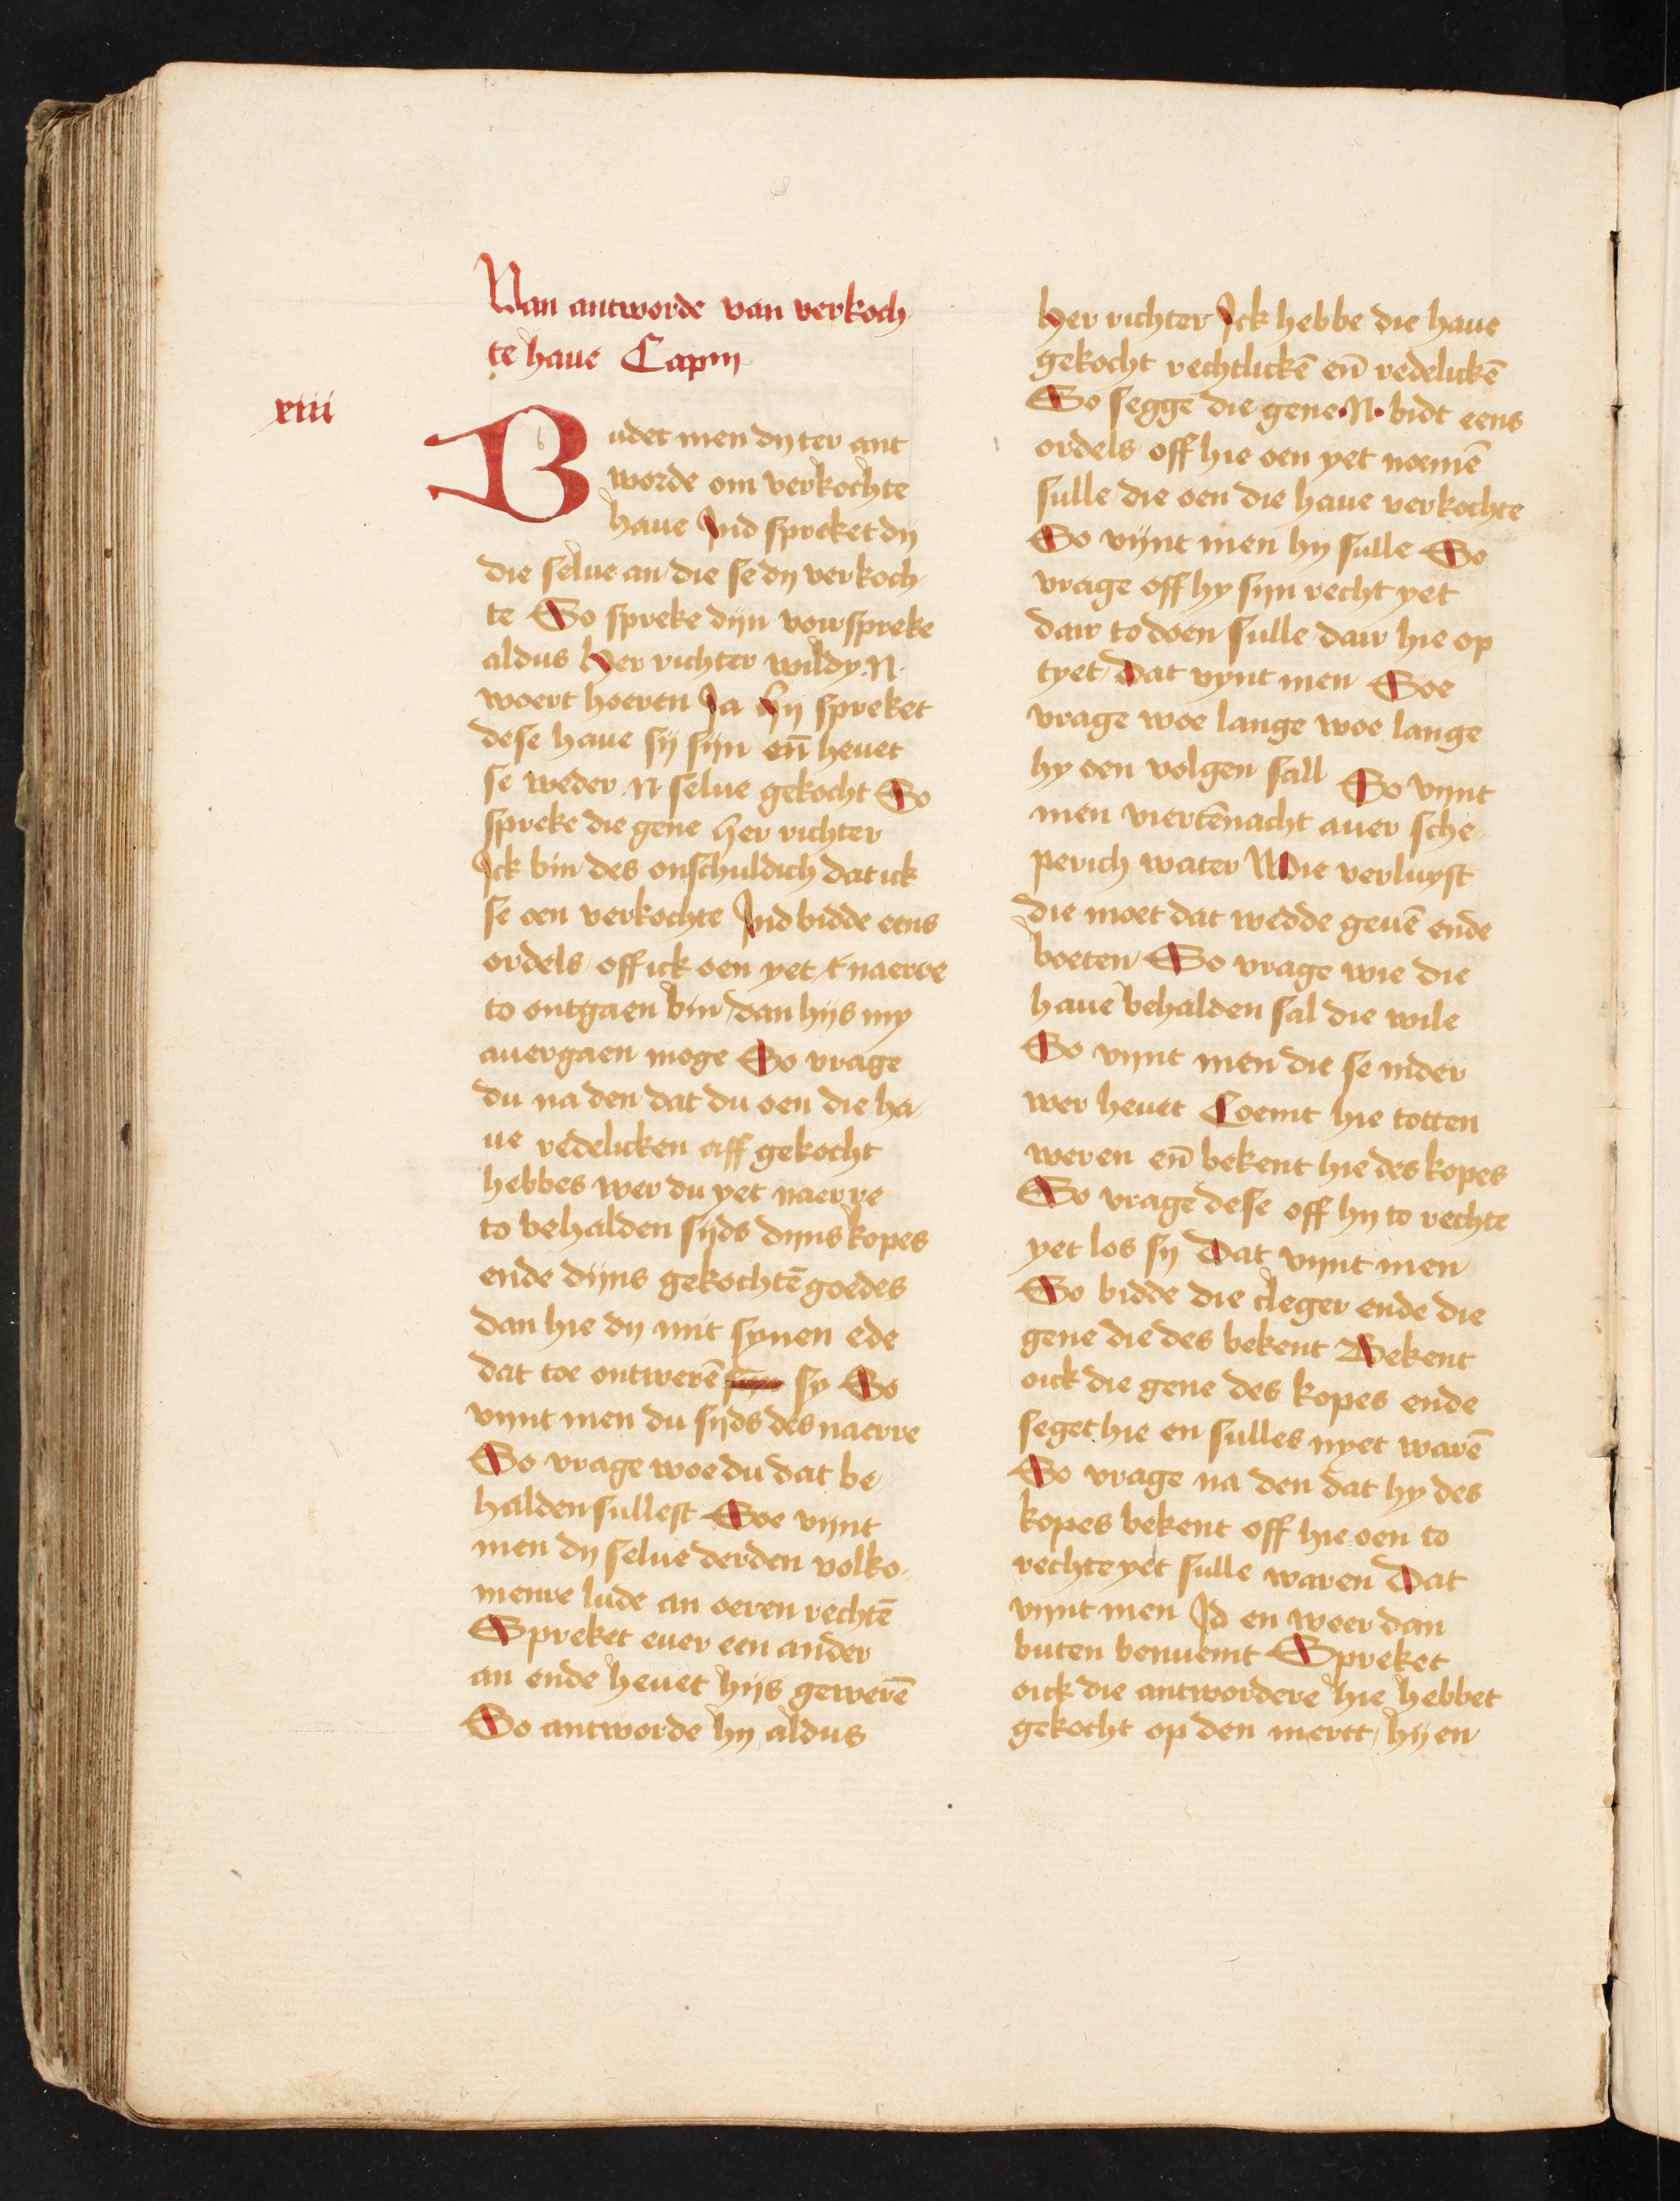 Van antworde van verkoch
te haue Capm
xiii
Budet men dy ter ant
worde om verkochte
haue Jnd spreket dy
die selue an die se dy verkoch-
te So spreke dijn vorspreke
aldus Her richter wildy .N.
woert hoeren Ja Hy spreket
dese haue sij sijn eñ heuet
se weder .N. selue gekocht So
spreke die gene her richter
Jck bin des onschuldich dat ick
se oen verkochte Jnd bidde eens
ordels off ick oen yet naerre
to ontgaen bin dan hijs my
auergaen moge So vrage
du na den dat du oen die ha-
ue redelicken aff gekocht
hebbes wer du yet naerre
to behalden sijds dijns kopes
ende dijns gekochtē goedes
dan hie dy mit synen ede
dat toe ontwerē sy So
vijnt men du sijds des naerre
So vrage woe du dat be-
halden sullest Soe vijnt
men dy selue derden volko-
menre lude an oeren rechtē
Spreket euer een ander
an ende heuet hijs gewerē
So antworde hy aldus
Her richter Jck hebbe die haue
gekocht rechtlickē eñ redelickē
So segge die gene .N. bidt eens
ordels off hie oen yet noemē
sulle die oen die haue verkochte
So vijnt men hy sulle So
vrage off hy sijn recht yet
dair to doen sulle dair hie op
tyet Dat vynt men Soe
vrage woe lange woe lange
hy oen volgen sall So vijnt
men viertēnacht auer sche-
perich water Wie verluyst
die moet dat wedde geuē ende
boeten So vrage wie die
haue behalden sal die wile
So vijnt men die se inder
wer heuet Coemt hie totten
weren eñ bekent hie des kopes
So vrage dese off hy to rechte
yet los sij Dat vijnt men
So bidde die cleger ende die
gene die des bekent Bekent
oick die gene des kopes ende
seget hie en sulles nyet warē
So vrage na den dat hy des
kopes bekent off hie oen to
rechte yet sulle waren Dat
vijnt men Jd en weer dan
buten benuemt Spreket
oick die antwordere hie hebbet
gekocht op den mertt hy en